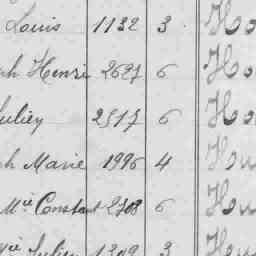 Louis 1132 3 Ho
ph Henri 2627 6 Ho
Juliey 2517 6 Ho
ph Marie 1996 4 Hou
Mie Constant 2708 6 Hou
Julien 1309 3 Hou